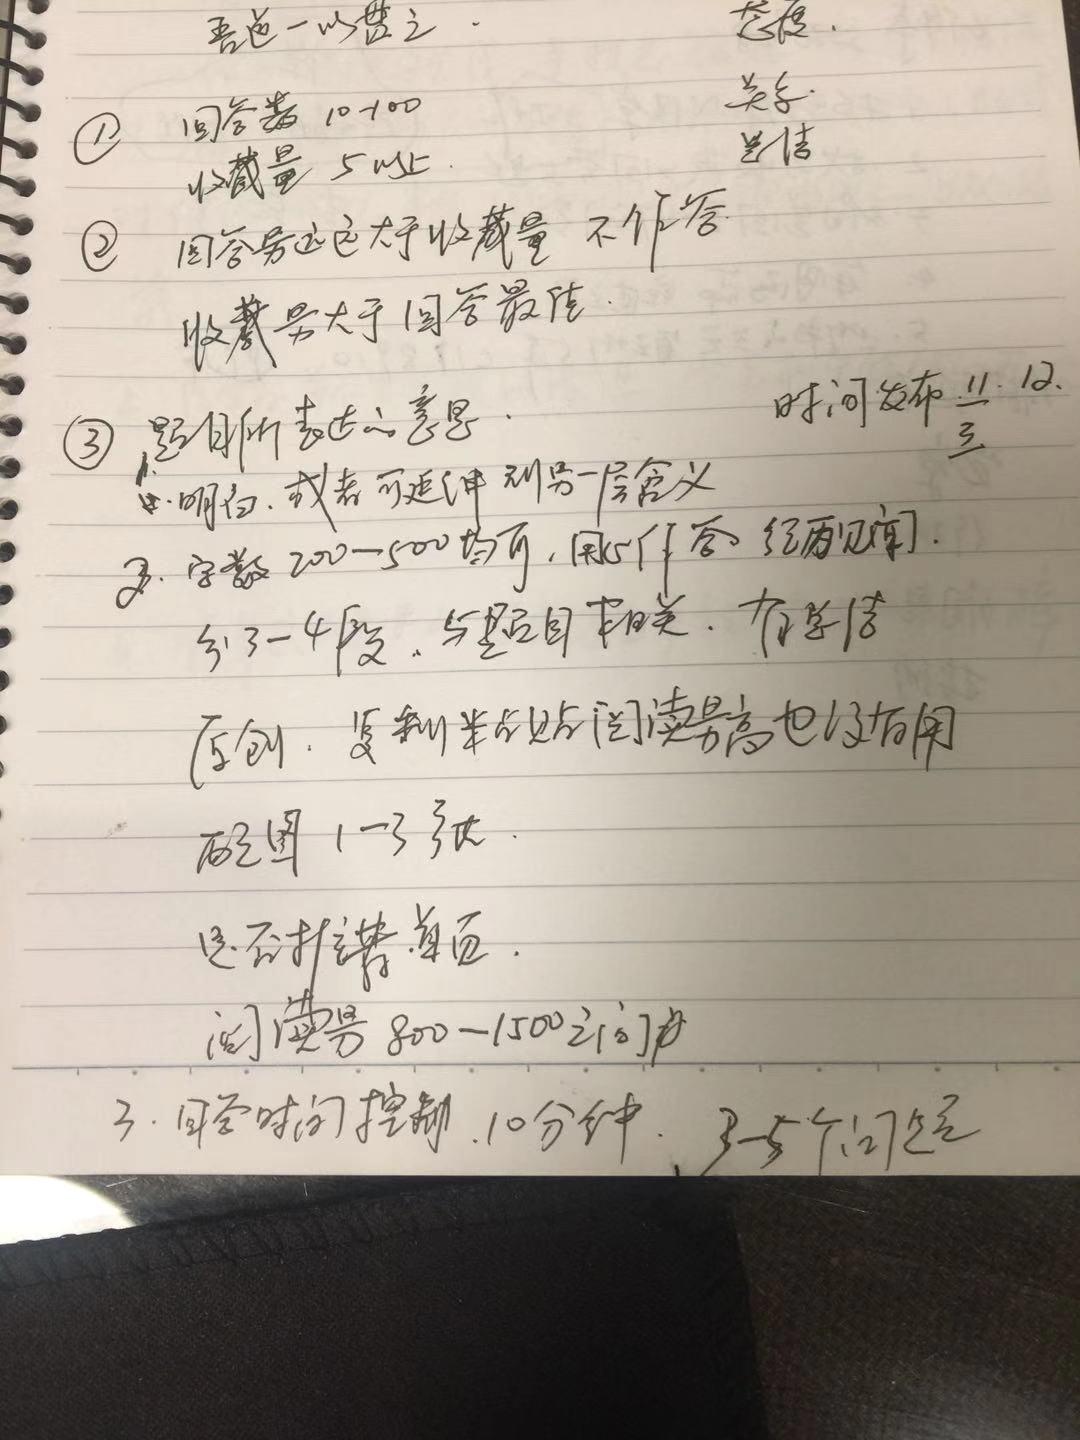 吾道一以贯之. 态度.
① 回答数 10-100 关系.
收藏量 5以上. 总结
② 回答量远远大于收藏量 不作答
收藏量大于回答最佳.
时间发布 11. 12.
③ 题目所表达的意思.
1. 明白. 或者可延伸到另一层含义
2. 字数200—500均可, 用心作答 经历见闻.
分3—4段. 与题目相关. 有总结
原创. 复制粘贴阅读量高也没有用
配图 1—3张.
是否折叠单页.
阅读量 800—1500之间
3. 回答时间控制. 10分钟. 3—5个问题